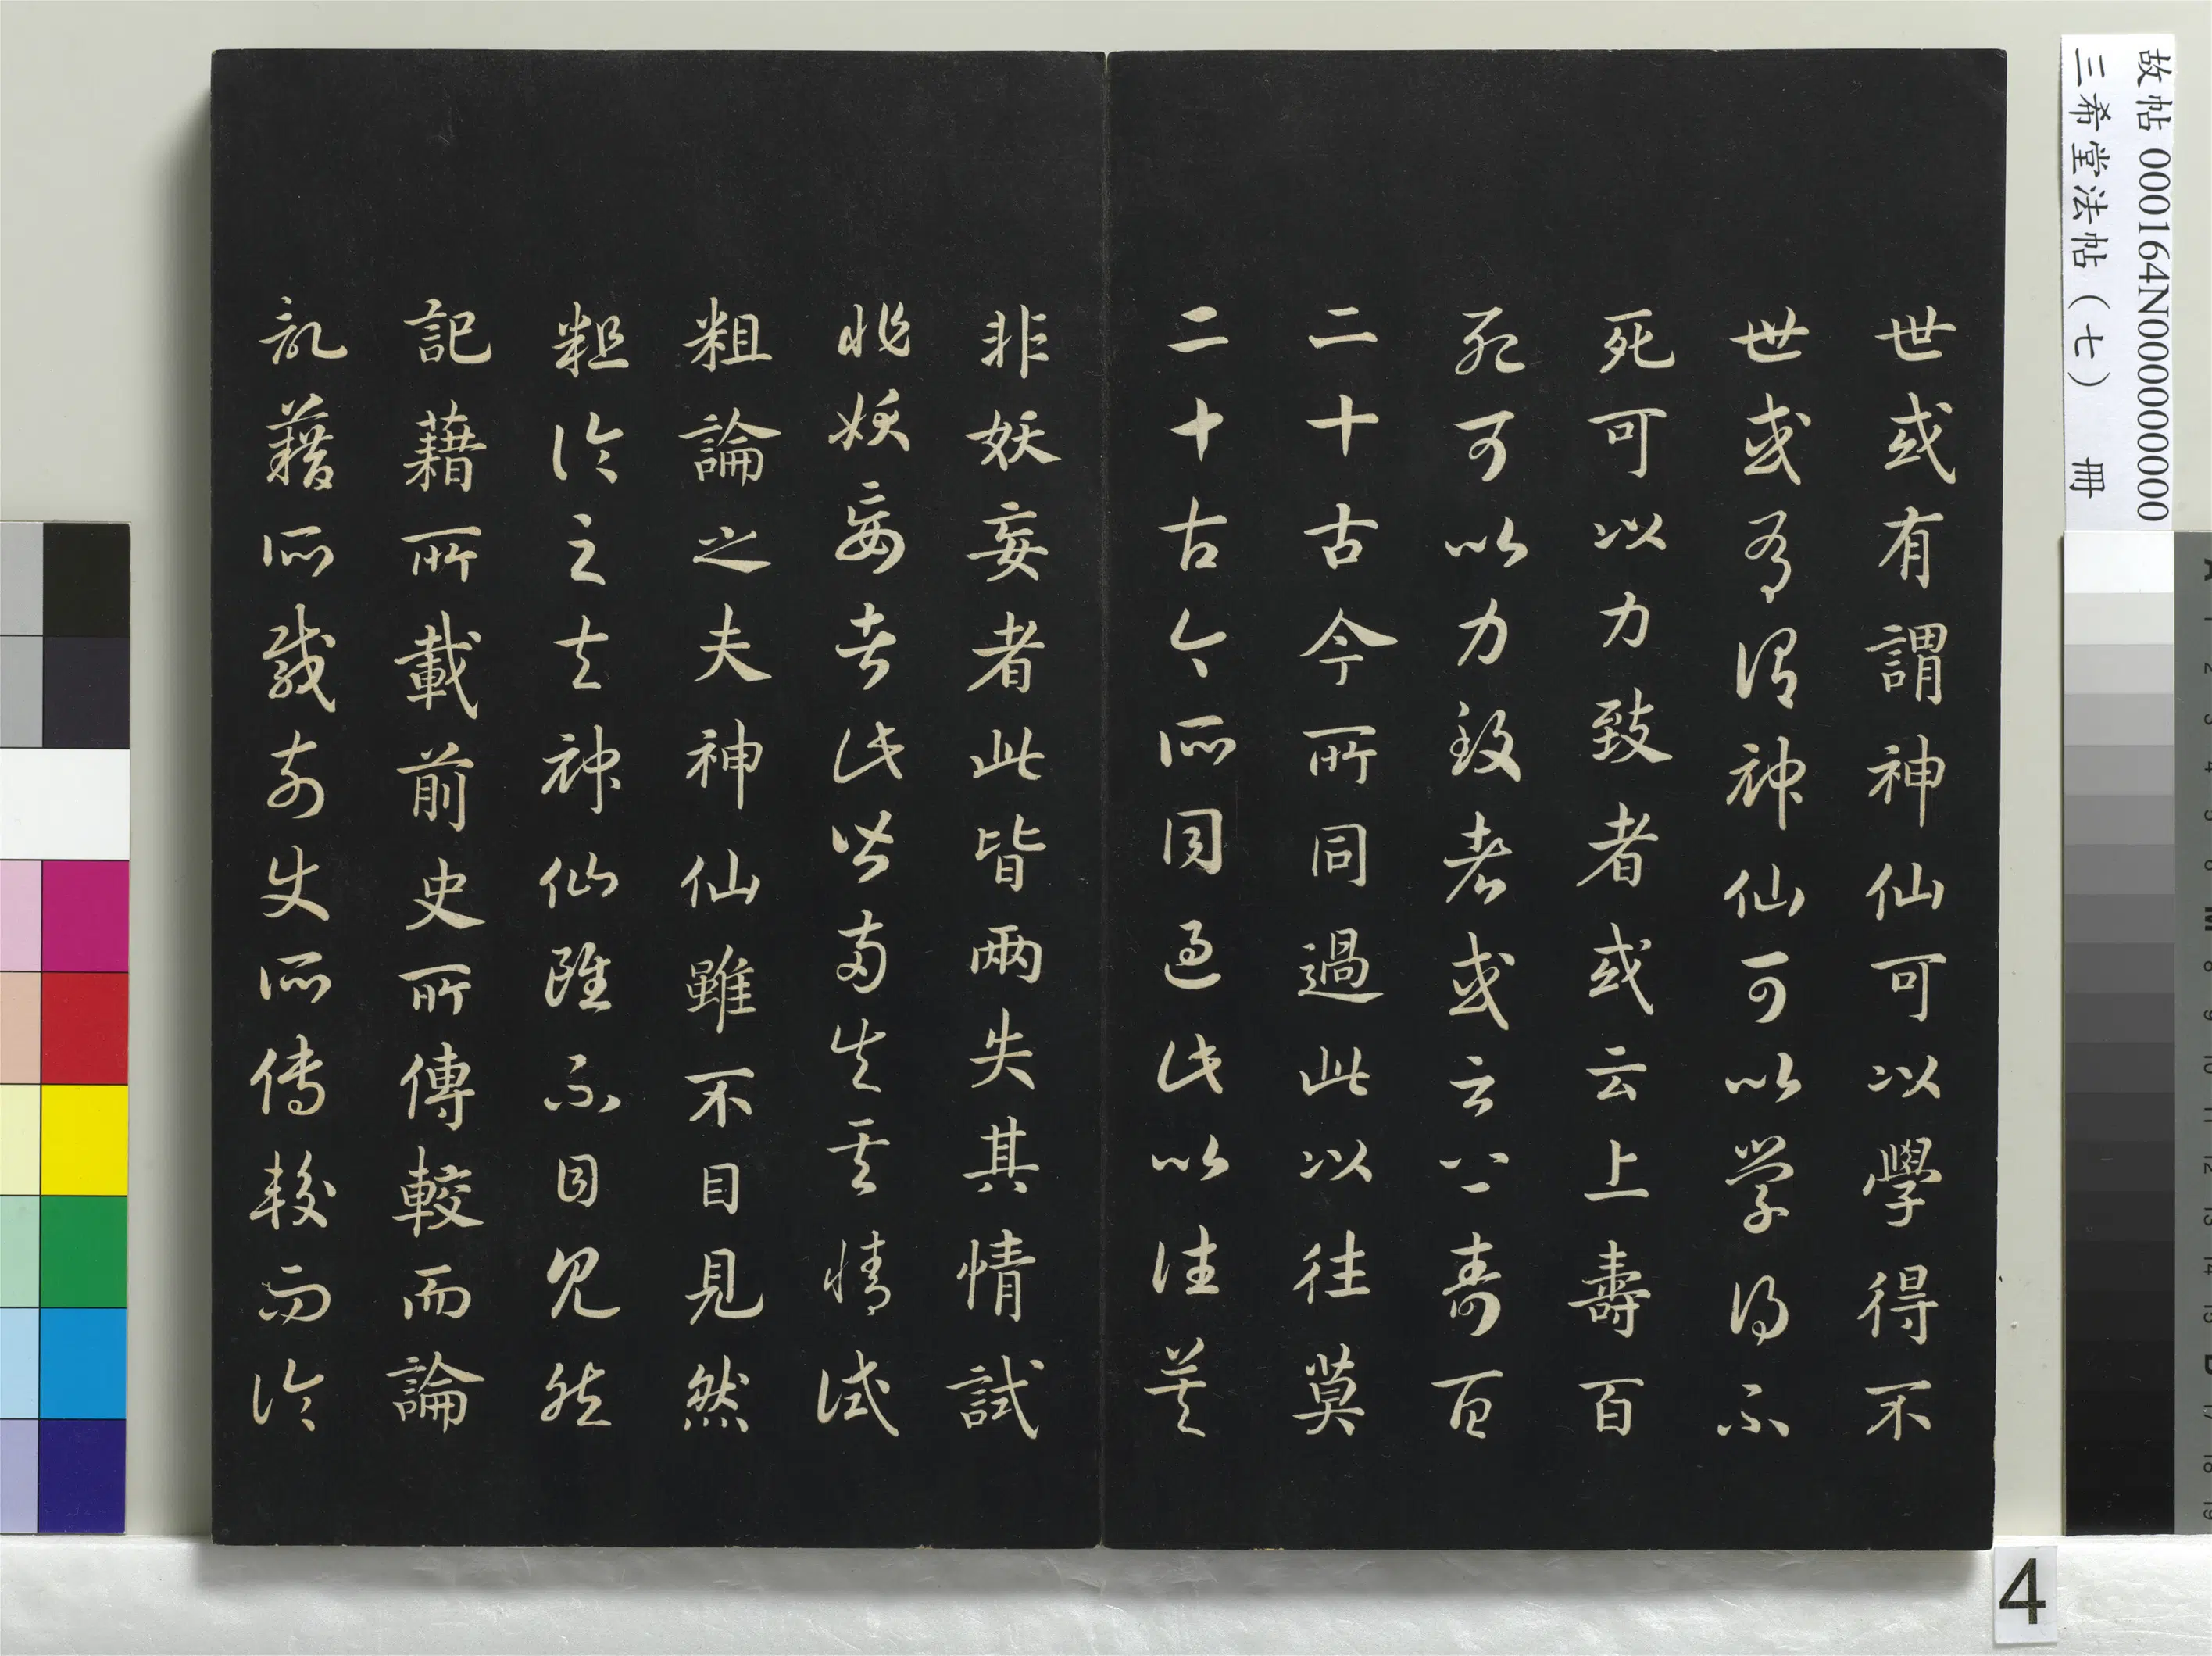 故帖 000164N000000000
三希堂法帖(七) 冊
世或有謂神仙可以學得不
世或有謂神仙可以學得不
死可以力致者或云上壽百
死可以力致者或云上壽百
二十古今所同過此以往莫
二十古今所同過此以往莫
非妖妄者此皆兩失其情試
非妖妄者此皆兩失其情試
粗論之夫神仙雖不目見然
粗論之夫神仙雖不目見然
記藉所載前史所傳較而論
記藉所載前史所傳較而論
4